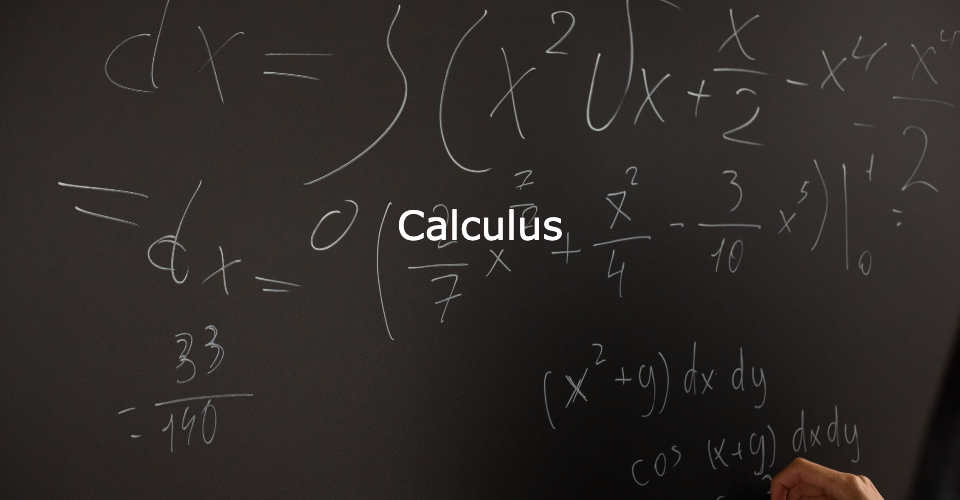 dx = ∫ (x² √x + x/2 - x⁴ - x⁴/2
= dx = 0 (2/7 x^7/2 + x²/4 - 3/10 x⁵) |¹₀ =
Calculus
= 33/140
(x² + y) dx dy
cos (x+y) dxdy